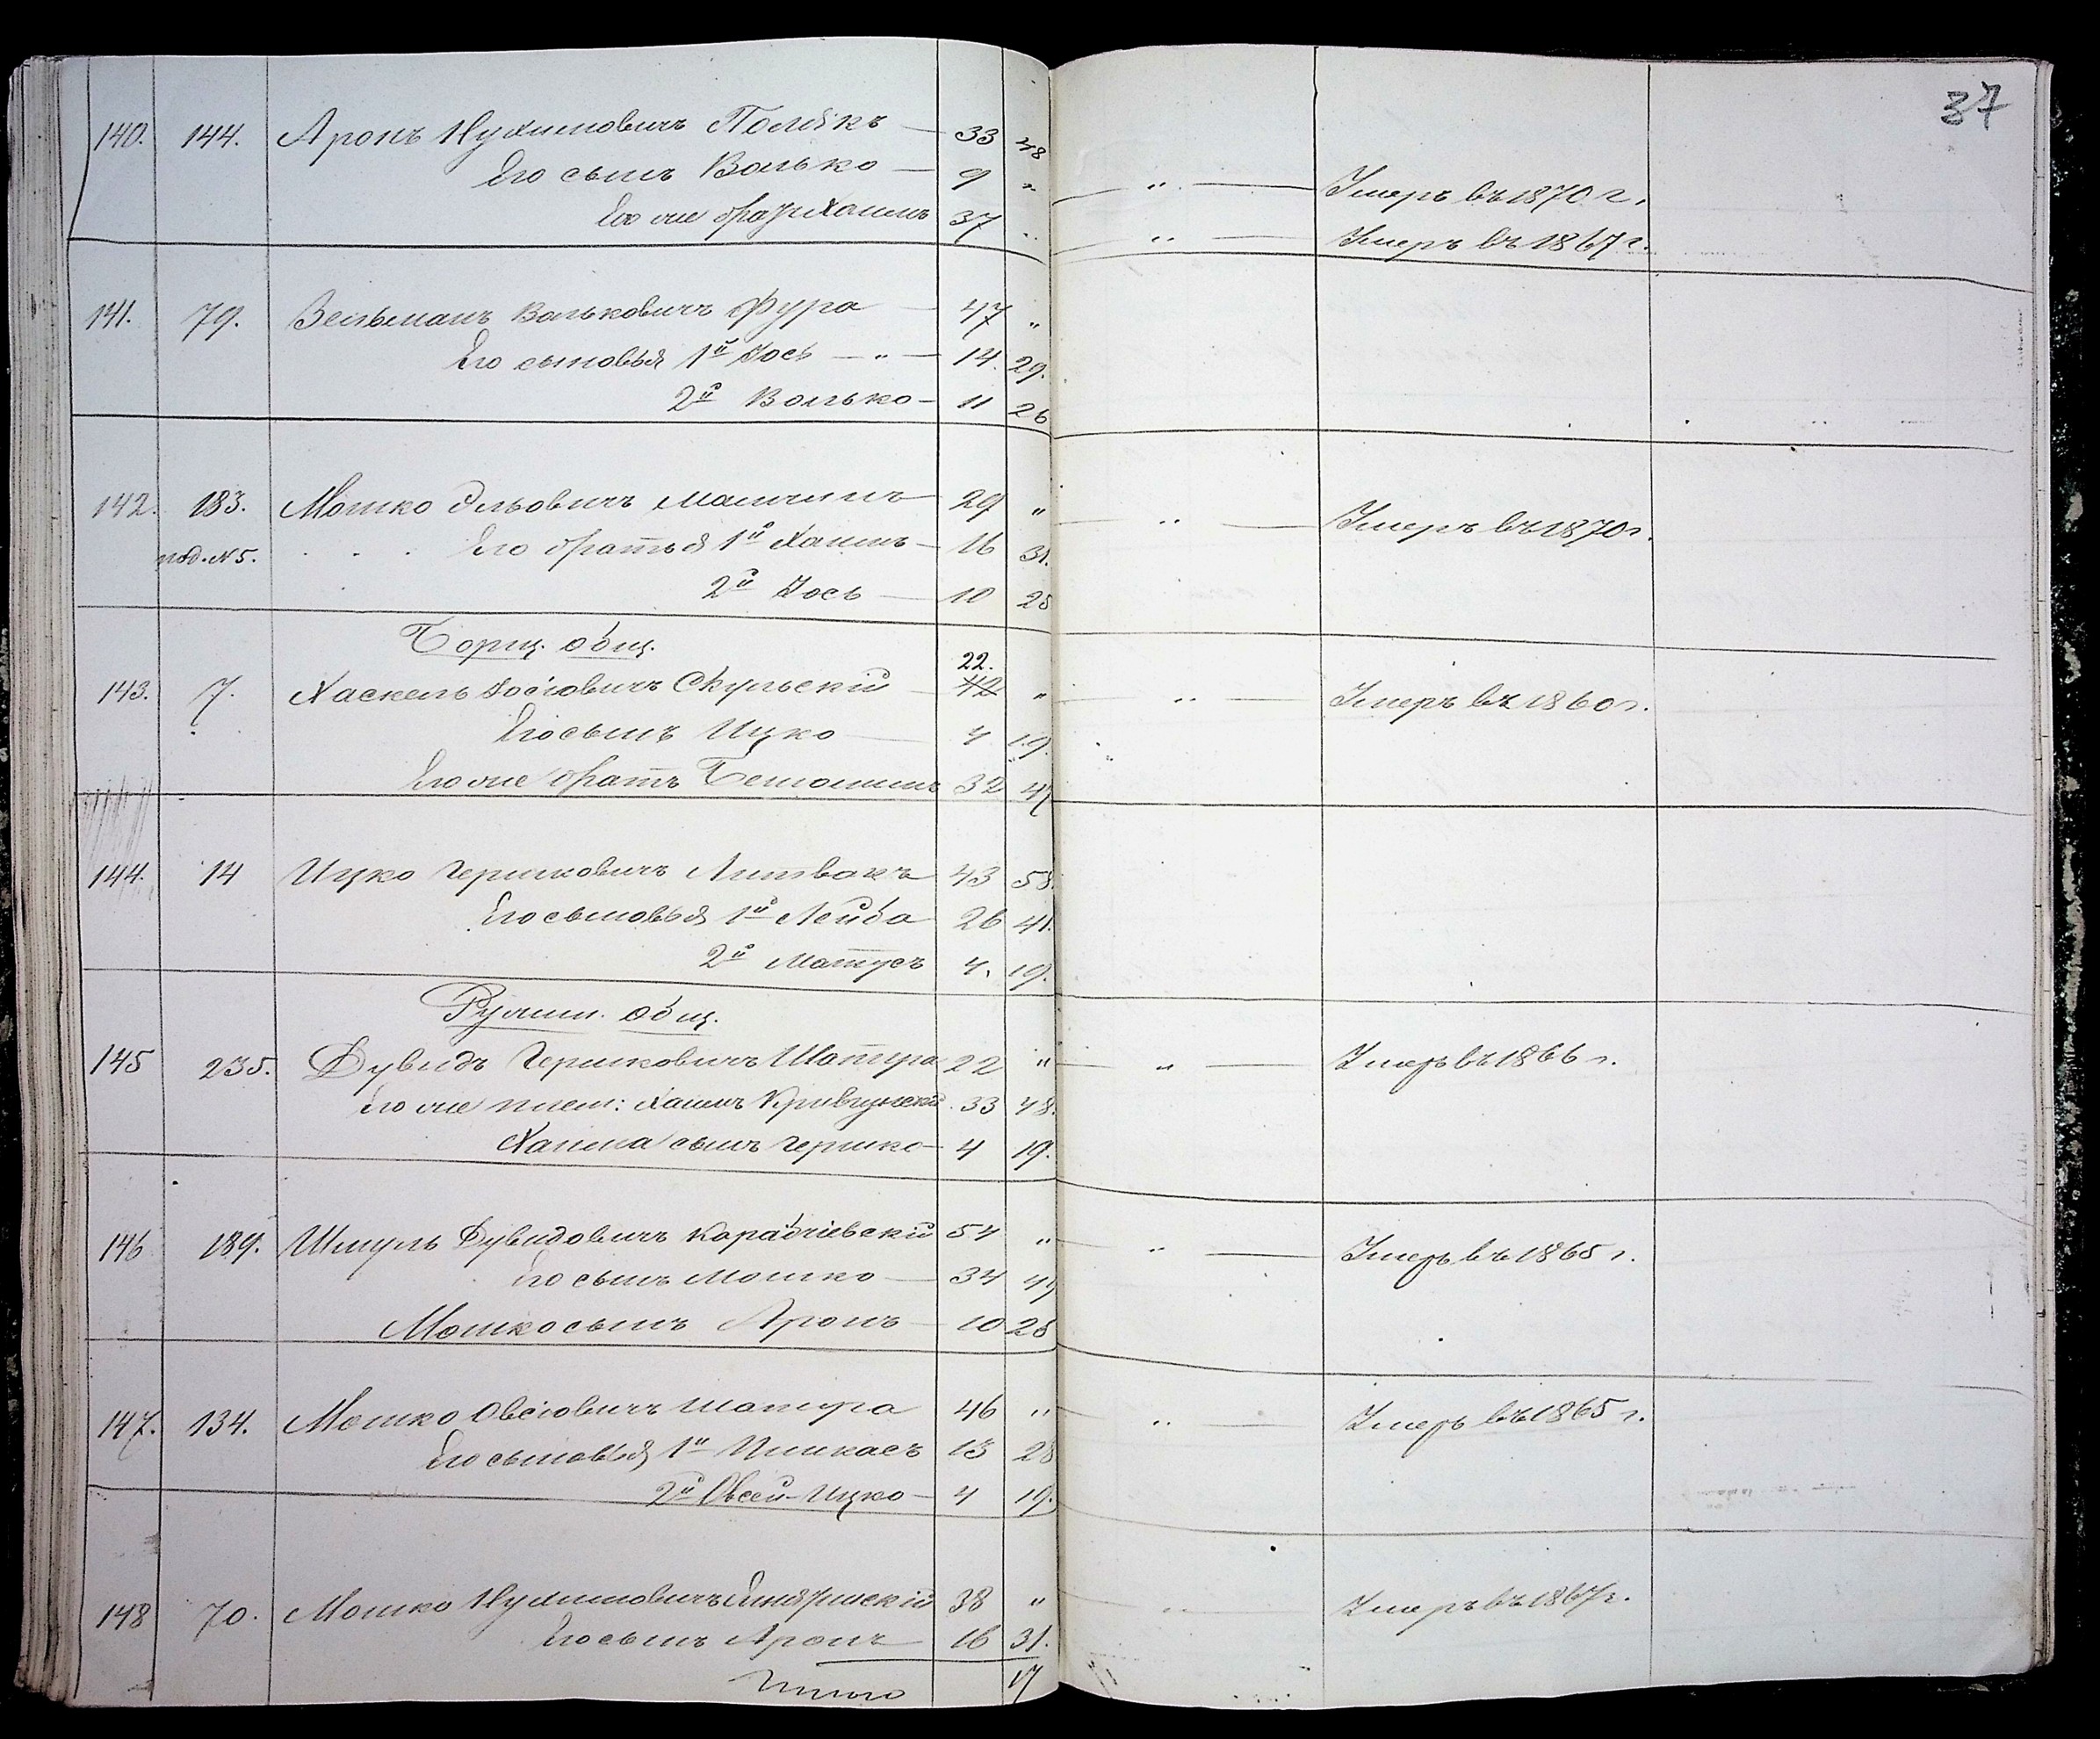 37
140. 144. Аронъ Нухимовичъ Полякъ — 33 48
Его сынъ Волько — 9 „ — „ — Умеръ въ 1870 г.
Его же братъ Хаимъ 37 „ — „ — Умеръ въ 1867 г.
141. 79. Зельманъ Вольковичъ Фура — 47 „
Его сыновья 1й Іось — „ — 14. 29.
2й Волько — 11 26
142. 183. Мошко Эльовичъ Мальчинъ — 29 „ — „ — Умеръ въ 1870 г.
под. №5. Его братья 1й Хаимъ — 16 31.
2й Іось — 10 25
Борщ. общ.
22.
143. 7. Хаскель Іосіовичъ Скульскій — 42 „ — „ — Умеръ въ 1860 г.
Его сынъ Ицко — 4 19.
Его же братъ Беньоминъ 32 47
144. 14 Ицко Гершковичъ Литвакъ 43 58.
Его сыновья 1й Лейба 26 41.
2й Матусъ 4. 19.
Ружин. общ.
145 235. Дувидъ Гершковичъ Шапира 22 „ — „ — Умеръ въ 1866 г.
Его же плем: Хаимъ 33 48.
Хаима сынъ Гершко — 4 19.
146 189. Шмуль Дувидовичъ Карабчіевскій 54 „ — „ — Умеръ въ 1865 г.
Его сынъ Мошко — 34 49
Мошко сынъ Аронъ — 10 25
147. 134. Мошко Овсіовичъ Шапира 46 „ — „ — Умеръ въ 1865 г.
Его сыновья 1й Пинкасъ 13 28
2й Овсей-Ицко — 4 19.
148 70. Мошко Нухимовичъ 38 „ — „ — Умеръ въ 1867 г.
Его сынъ Аронъ 16 31.
Итого 17